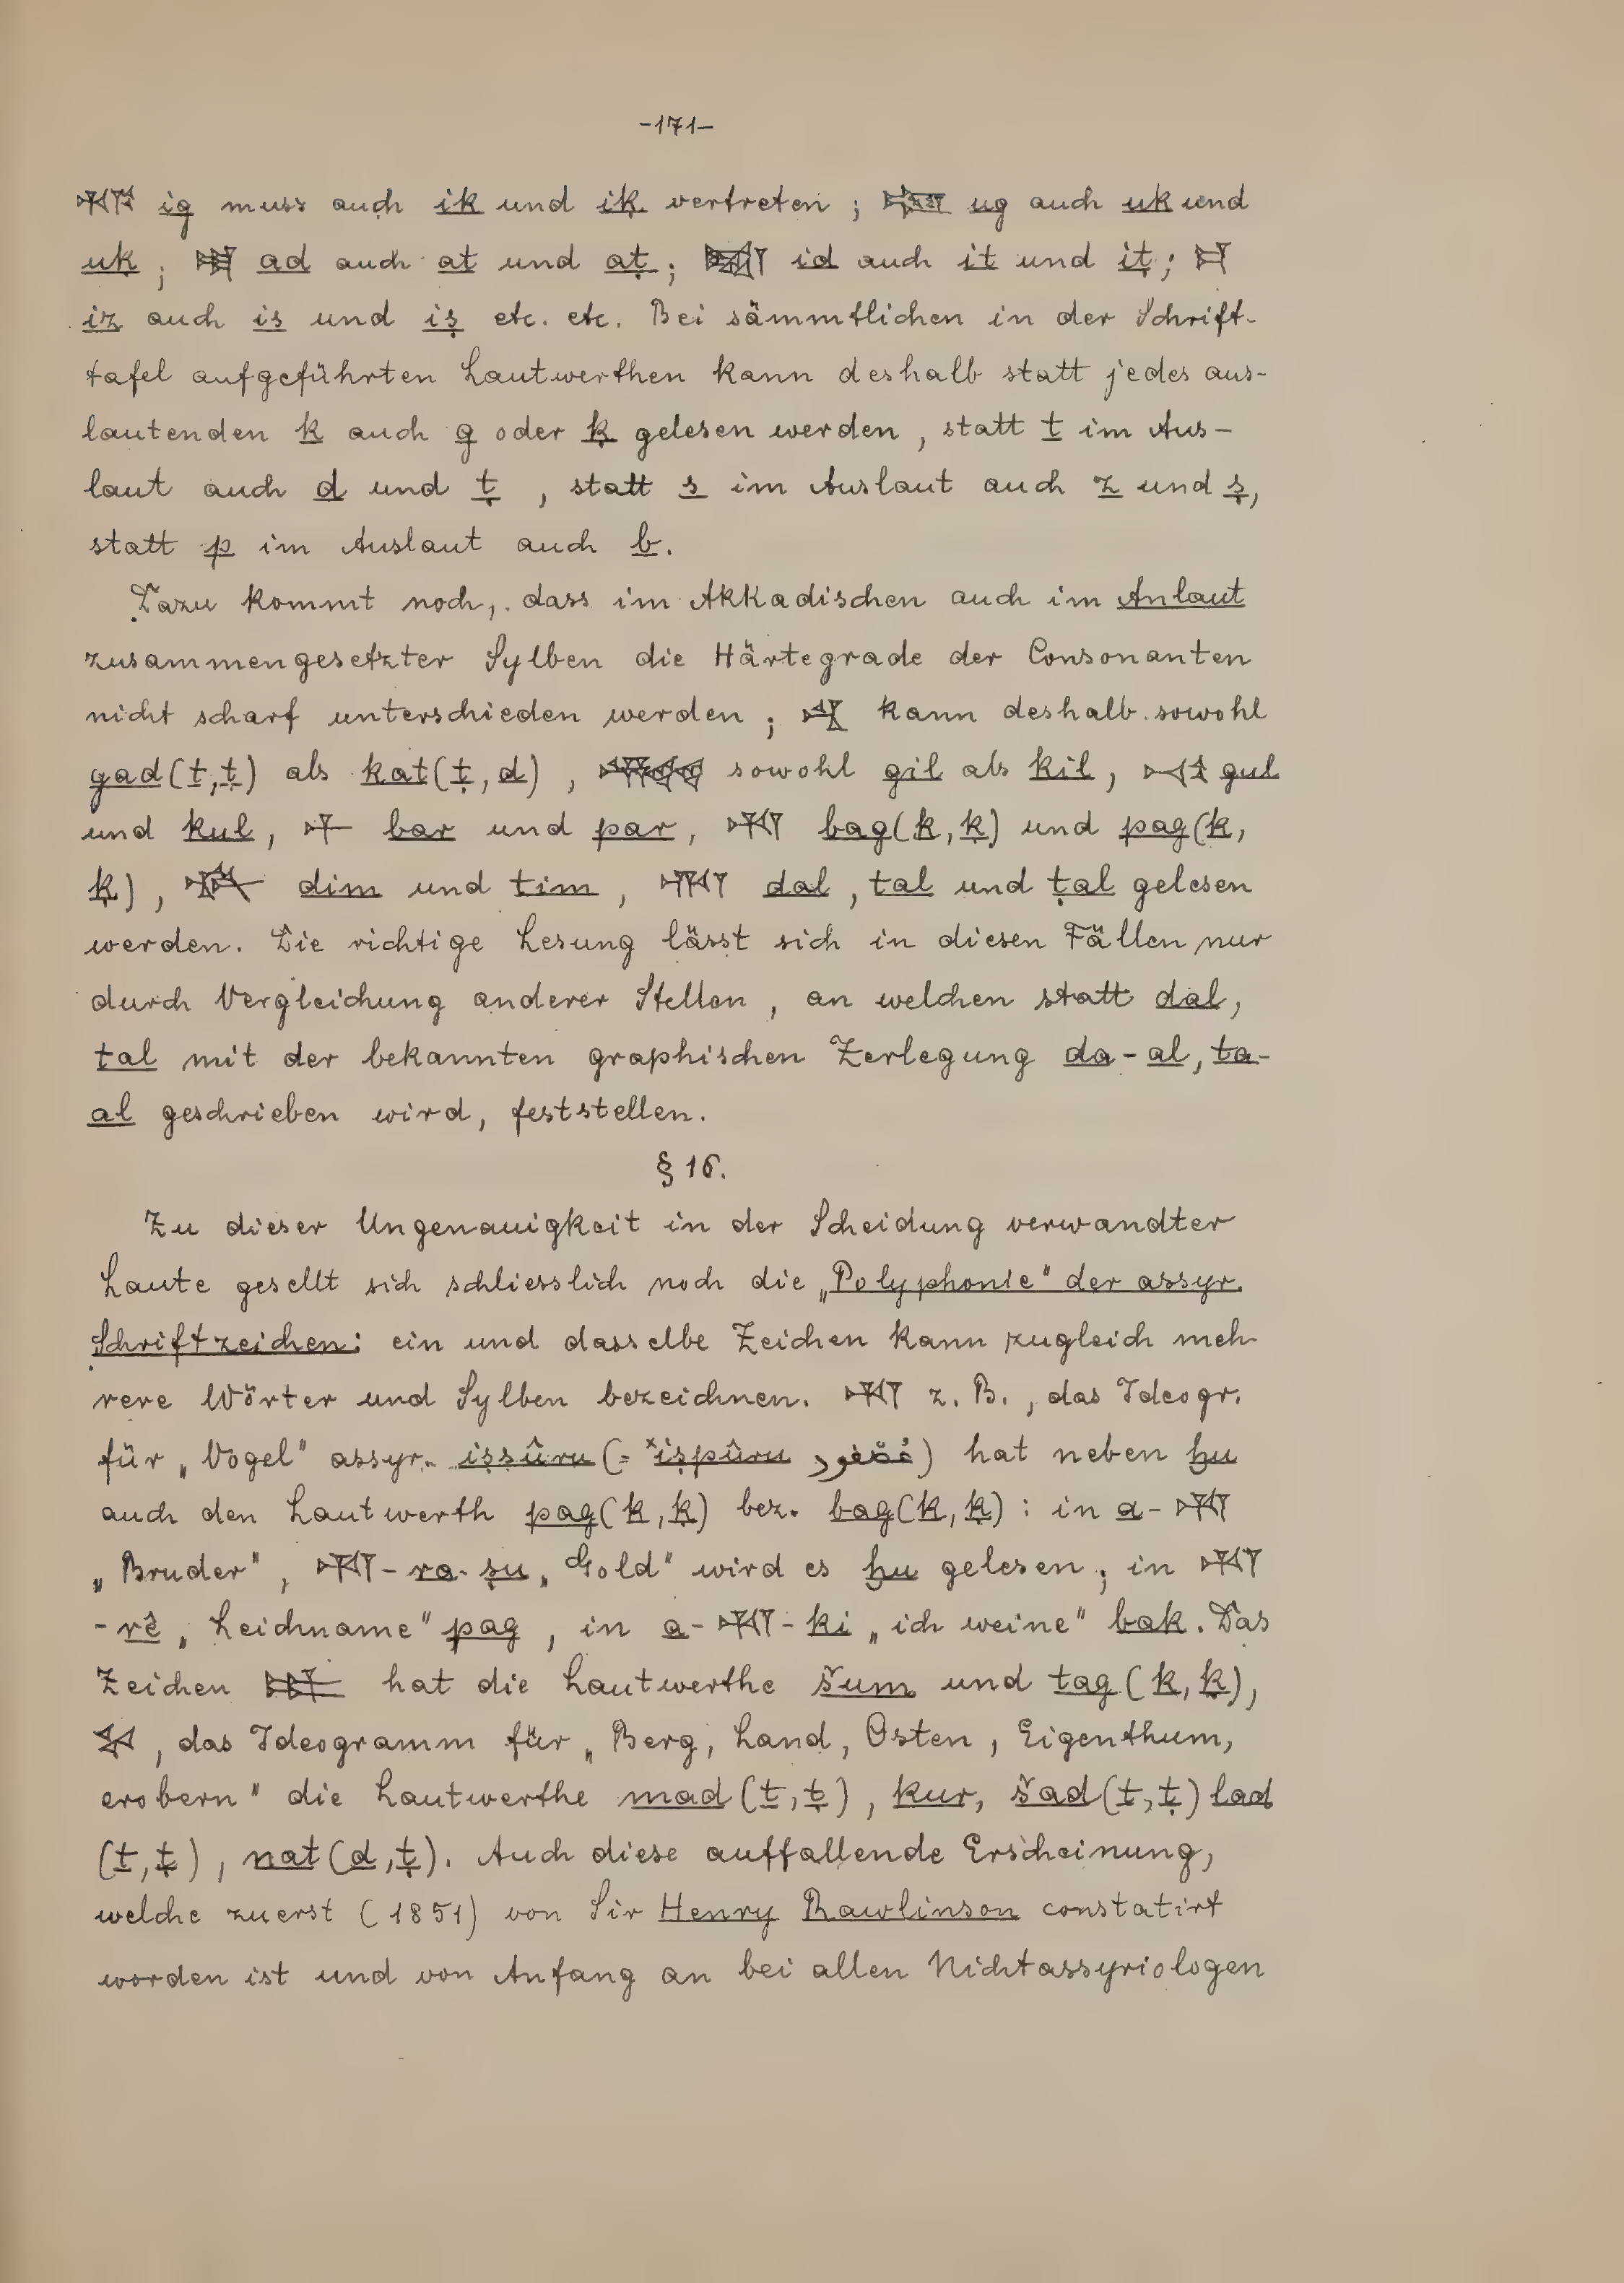 -171-
𒅅 ig muss auch ik und iḳ vertreten ; 𒊌 ug auch uk und
uḳ ; 𒀜 ad auch at und aṭ ; 𒀉 id auch it und iṭ ; 𒄑
iz auch is und iṣ etc. etc. Bei sämmtlichen in der Schrift-
tafel aufgeführten Lautwerthen kann deshalb statt jedes aus-
lautenden k auch g oder ḳ gelesen werden , statt t im Aus-
laut auch d und ṭ , statt s im Auslaut auch z und ṣ,
statt p im Auslaut auch b.
Dazu kommt noch, dass im Akkadischen auch im Anlaut
zusammengesetzter Sylben die Härtegrade der Consonanten
nicht scharf unterschieden werden ; 𒃰 kann deshalb sowohl
gad (t,ṭ) als kat (ṭ,d) , 𒄀 sowohl gil als kil , 𒆰 gul
und kul , 𒁇 bar und par , 𒄷 bag (k,ḳ) und pag (k,
ḳ) , 𒁴 dim und tim , 𒊑 dal , tal und ṭal gelesen
werden. Die richtige Lesung lässt sich in diesen Fällen nur
durch Vergleichung anderer Stellen , an welchen statt dal,
tal mit der bekannten graphischen Zerlegung da-al, ta-
al geschrieben wird, feststellen.
§ 16.
Zu dieser Ungenauigkeit in der Scheidung verwandter
Laute gesellt sich schliesslich noch die „Polyphonie" der assyr.
Schriftzeichen: ein und dasselbe Zeichen kann zugleich meh-
rere Wörter und Sylben bezeichnen. 𒄷 z. B. , das Ideogr.
für „Vogel" assyr. iṣṣûru (= *iṣpûru عُصْفُور) hat neben ḫu
auch den Lautwerth pag (k,ḳ) bez. bag (k,ḳ) : in a-𒄷
„Bruder" , 𒄷-ra-ṣu „Gold" wird es ḫu gelesen ; in 𒄷
-rê „Leichname" pag , in a-𒄷-ki „ich weine" bak. Das
Zeichen 𒋳 hat die Lautwerthe šum und tag (k,ḳ),
𒆳 , das Ideogramm für „Berg, Land, Osten, Eigenthum,
erobern" die Lautwerthe mad (t,ṭ) , kur, šad (t,ṭ) lad
(t,ṭ) , nat (d,ṭ). Auch diese auffallende Erscheinung,
welche zuerst (1851) von Sir Henry Rawlinson constatirt
worden ist und von Anfang an bei allen Nichtassyriologen